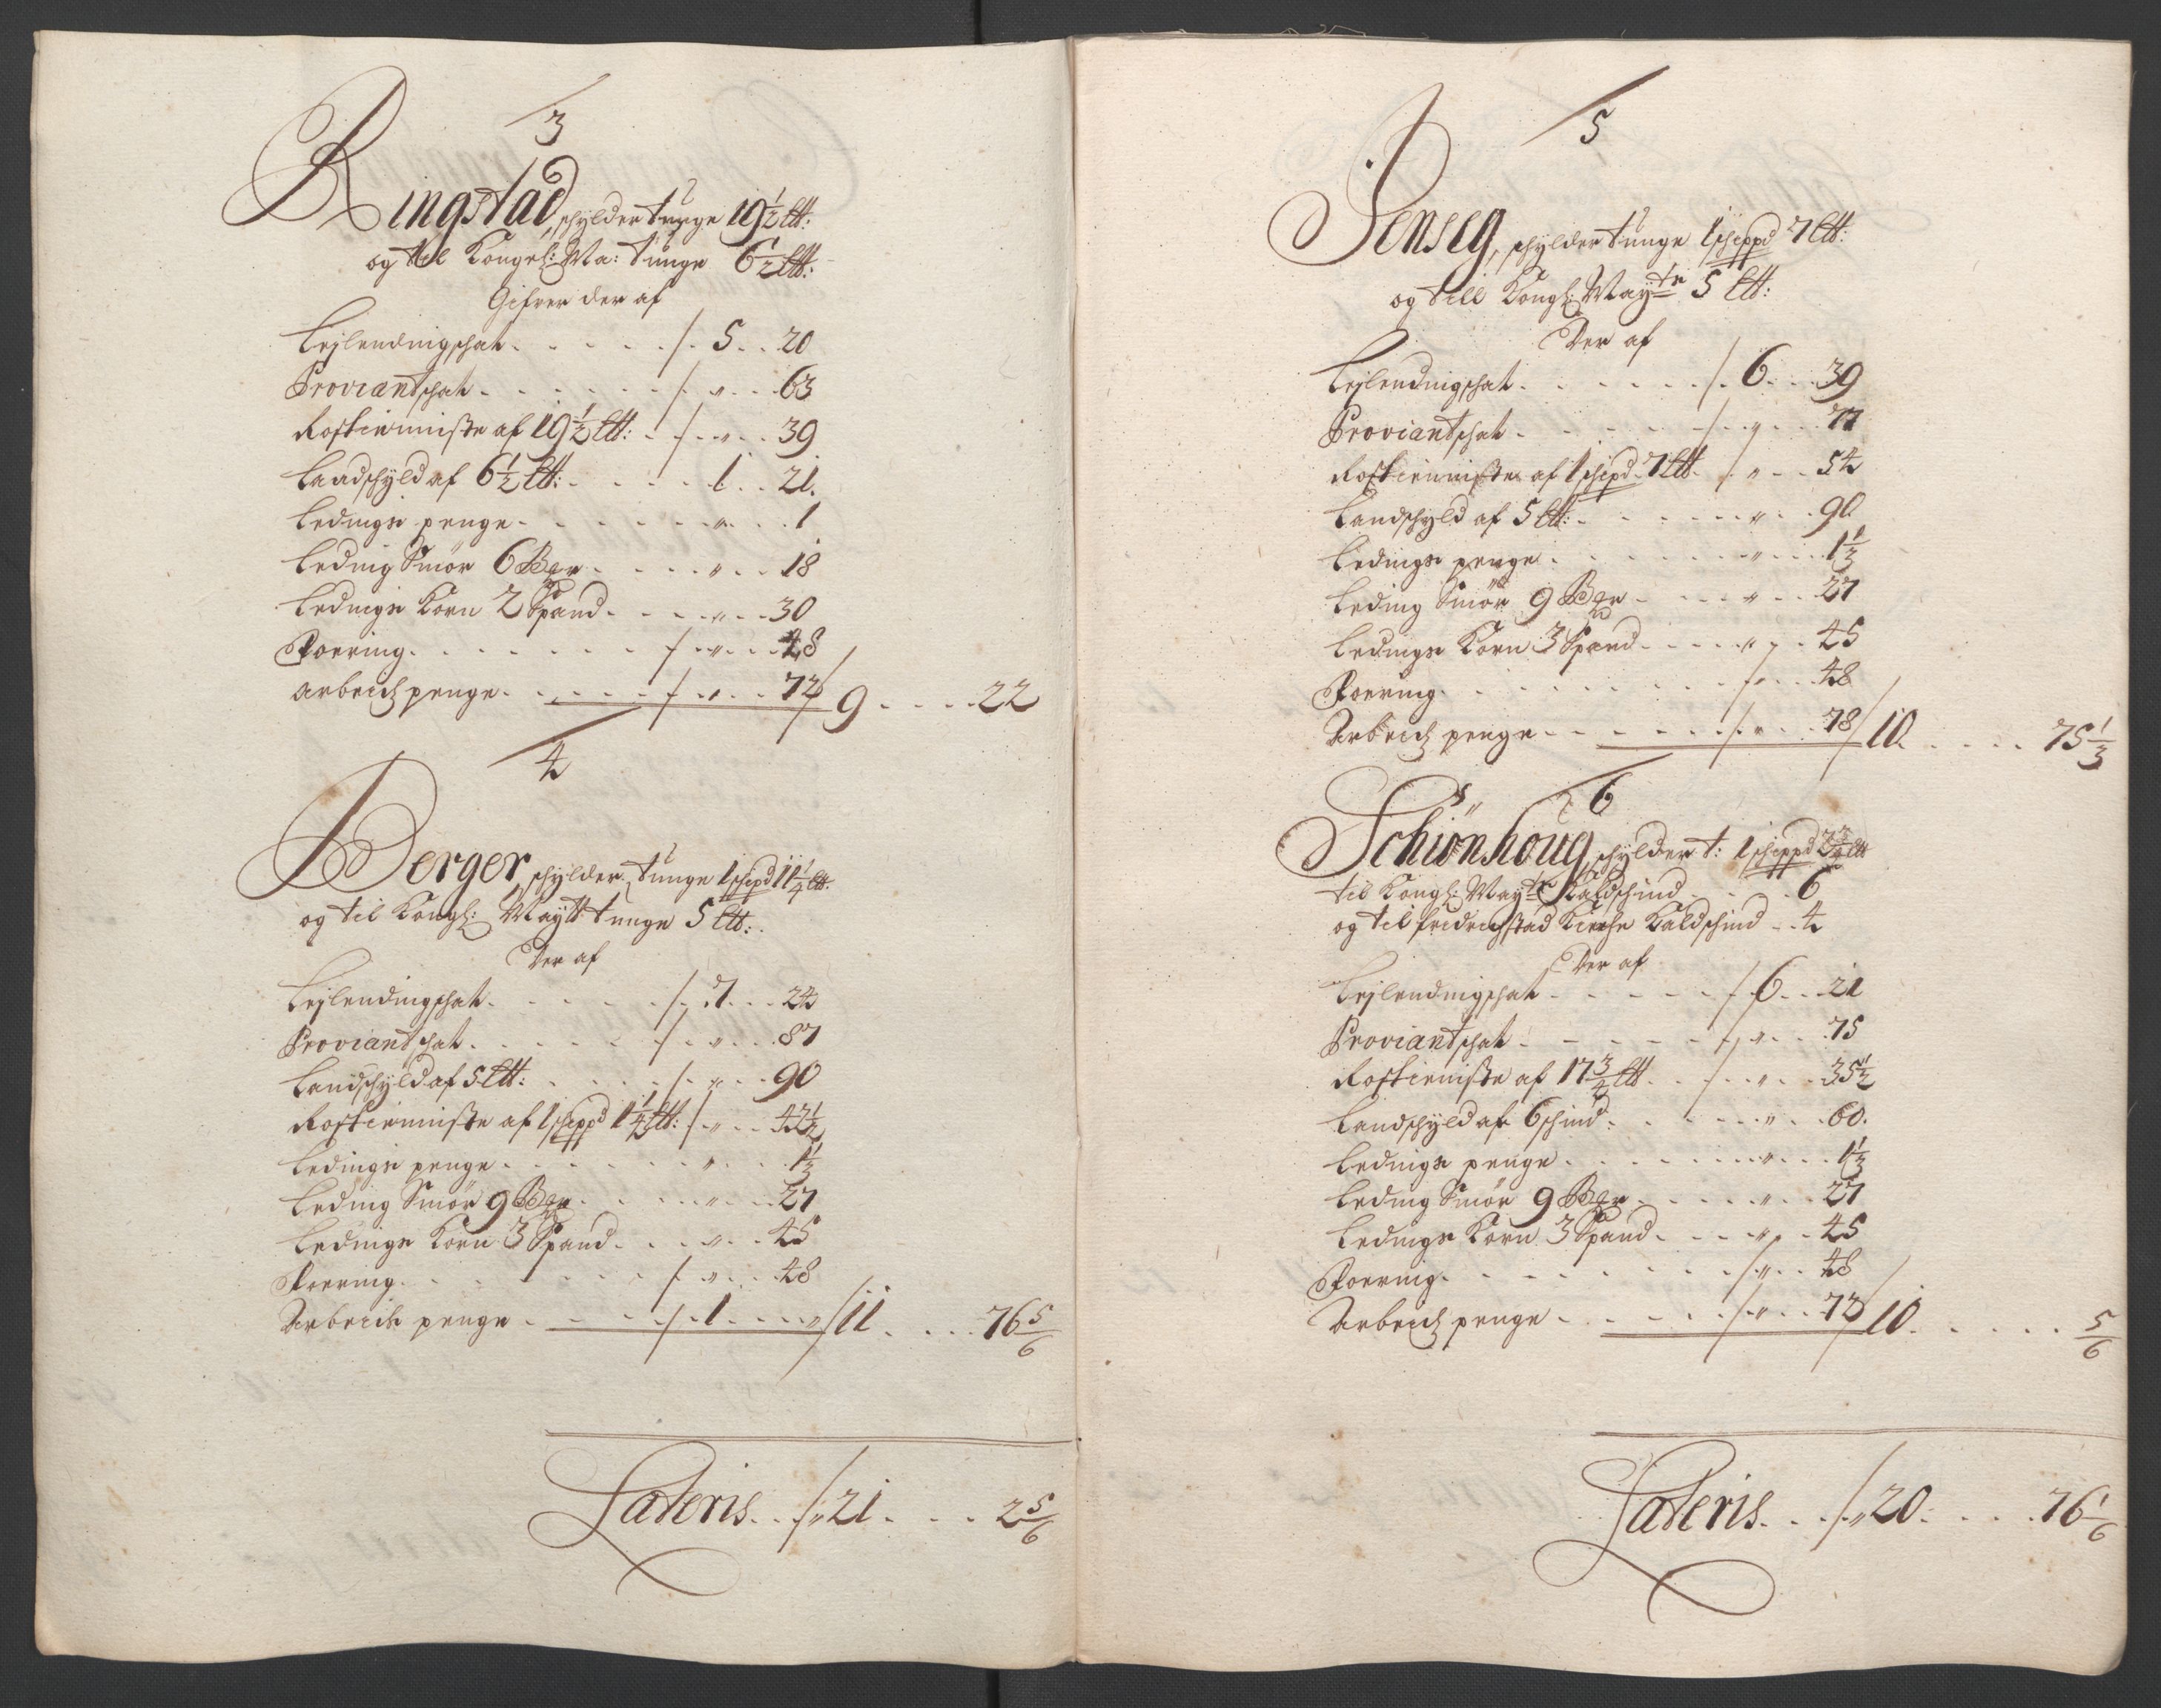 3
Ringstad, schylder tunge 19½ Ltt:
og til Kongel: Ma: tunge 6½ Ltt:
Gifver der af
Leylendingschat - - - - - - 5 - - 20
Proviantschat - - - - - - „ - - 63
Rostienniste af 19½ Ltt: - - „ - - 39
Landschyld af 6½ Ltt: - - - - 1 - - 21
Ledings penge - - - - - - „ - - 1
Leding Smör 6 Bʒr - - - - „ - - 18
Ledings Korn 2 Spand - - - - „ - - 30
Foering - - - - - - „ - - 48
arbeidz penge - - - - - - „ - - 72 / 9 - - - - 22
4
Berger, schylder tunge 1 schipd 11¼ Ltt:
og til Kongl: Maytt: tunge 5 Ltt:
Der af
Leylendingschat - - - - - - 7 - - 24
Proviantschat - - - - - - „ - - 87
Landschyld af 5 Ltt: - - - - „ - - 90
Rostienniste af 1 schippd 1¼ Ltt: „ - - 42½
Ledings penge - - - - - - „ - - 1⅓
Leding Smör 9 Bʒr - - - - „ - - 27
Ledings Korn 3 Spand - - - „ - - 45
Foering - - - - - - „ - - 48
Arbeids penge - - - - - - 1 - - „ / 11 - - - - 76 5/6
Lateris - - - 21 - - - - 2 5/6
5
Jenseg, schylder tunge 1 schippd 7 Ltt:
og till Kongl: Mayts 5 Ltt:
Der af
Leylendingschat - - - - - - 6 - - 39
Proviantschat - - - - - - „ - - 77
Rostienniste af 1 schipd 7 Ltt - „ - - 54
Landschyld af 5 Ltt: - - - - „ - - 90
Ledings penge - - - - - - „ - - 1⅓
Leding Smör 9 Bʒr - - - - „ - - 27
Ledings Korn 3 Spand - - - - „ - - 45
Foering - - - - - - „ - - 48
Arbeidz penge - - - - - - „ - - 78 / 10 - - - - 75⅓
6
Schiönhoug, schylder t: 1 schippd 2¾ Ltt
til Kongl: Mayts Kaldschind - - 6
og til fridrichstad Kirche Kaldschind - - 4
Der af
Leylendingschat - - - - - - 6 - - 21
Proviantschat - - - - - - „ - - 75
Rostienniste af 17¾ Ltt - - - „ - - 35½
Landschyld af 6 schind - - - - „ - - 60
Ledings penge - - - - - - „ - - 1⅓
Leding Smör 9 Bʒr - - - - „ - - 27
Ledings Korn 3 Spand - - - - „ - - 45
Foering - - - - - - „ - - 48
Arbeidz penge - - - - - - „ - - 72 / 10 - - - - 5/6
Lateris - - - 20 - - - - 76 1/6